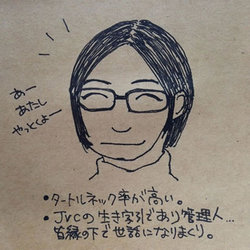 あー
あたし
やっとくよー
・タートルネック率が高い。
・JVCの生き字引であり管理人…
皆縁の下で世話になりまくり。